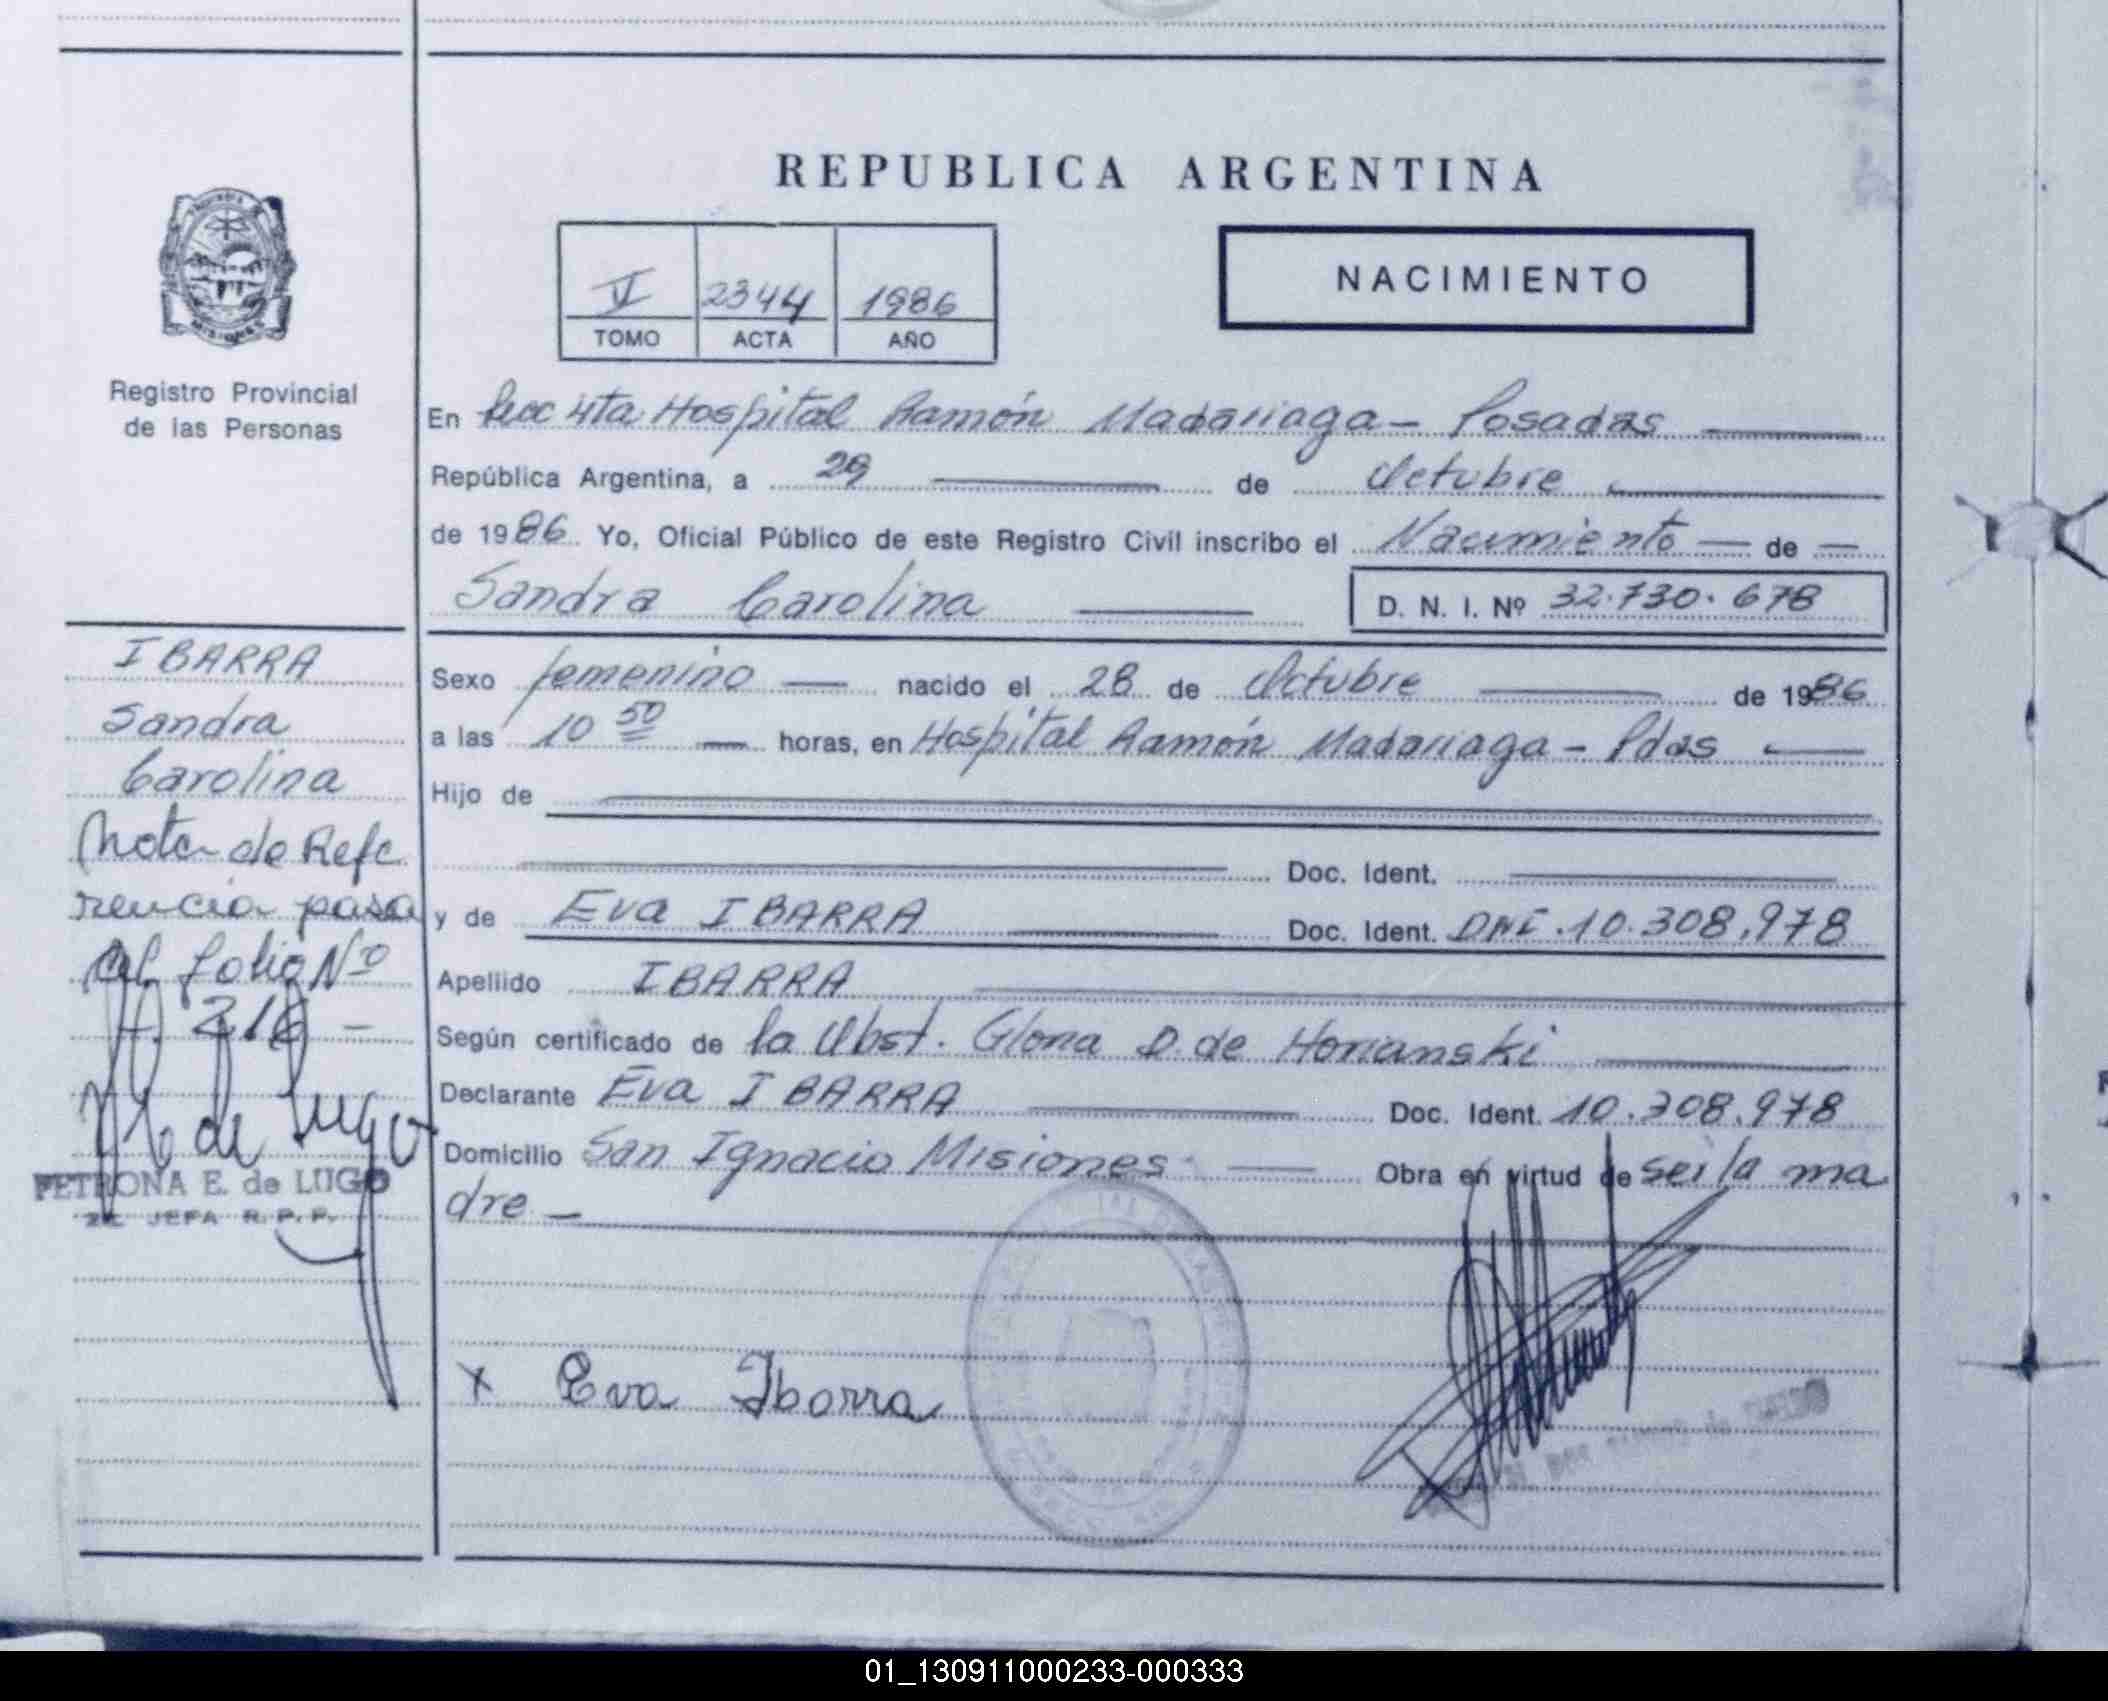 REPUBLICA ARGENTINA
V 2344 1986
TOMO ACTA AÑO
NACIMIENTO
Registro Provincial
de las Personas
En Secc 4ta Hospital Ramón Madariaga - Posadas
República Argentina, a 29 de Octubre
de 1986. Yo, Oficial Público de este Registro Civil inscribo el Nacimiento — de —
Sandra Carolina
D. N. I. Nº 32.730.678
IBARRA
Sandra
Carolina
Nota de Refe
rencia pasa
al folio Nº
- 216 -
PETRONA E. de LUGO
2a. JEFA R.P.P.
Sexo femenino — nacido el 28 de Octubre de 1986
a las 10 50 — horas, en Hospital Ramón Madariaga - Pdas
Hijo de
Doc. Ident.
y de Eva IBARRA Doc. Ident. DNI.10.308.978
Apellido IBARRA
Según certificado de la Obst. Gloria D. de Horianski
Declarante Eva IBARRA Doc. Ident. 10.308.978
Domicilio San Ignacio Misiones Obra en virtud de ser la ma
dre —
x Eva Ibarra
01_130911000233-000333